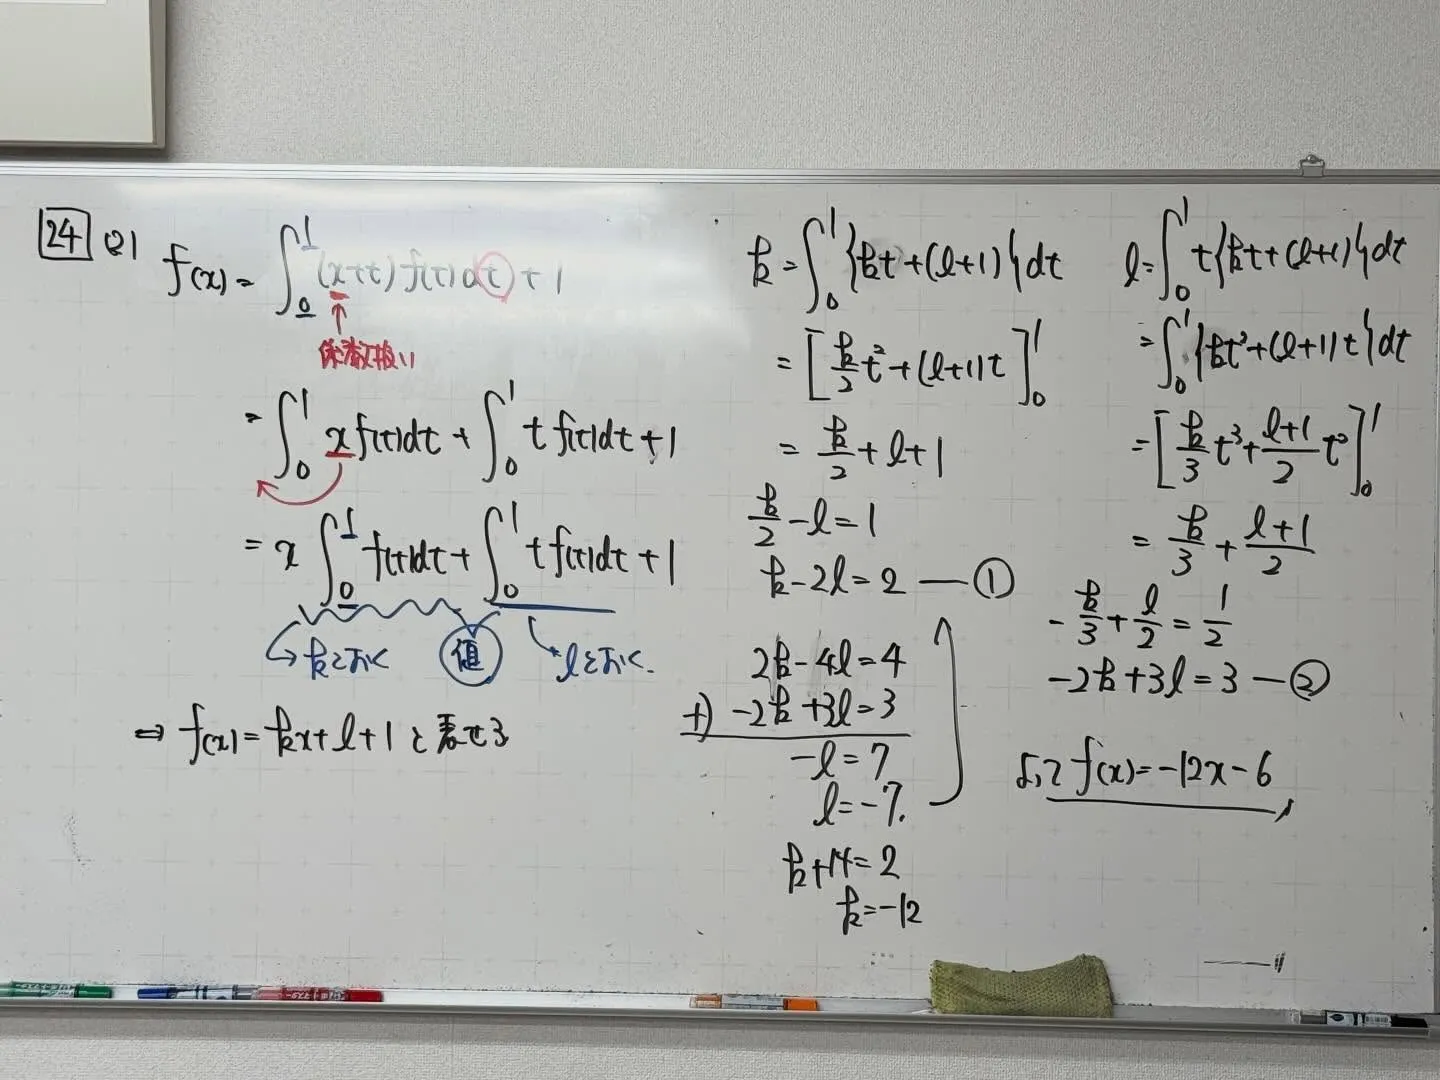 24 (2) f(x) = ∫₀¹ (x+t) f(t) dt + 1
係数扱い
= ∫₀¹ x f(t) dt + ∫₀¹ t f(t) dt + 1
= x ∫₀¹ f(t) dt + ∫₀¹ t f(t) dt + 1
kとおく 値 lとおく.
⇒ f(x) = kx + l + 1 と表せる
k = ∫₀¹ {kt + (l+1)} dt
= [k/2 t² + (l+1)t]₀¹
= k/2 + l + 1
k/2 - l = 1
k - 2l = 2 ― ①
2k - 4l = 4
+) -2k + 3l = 3
-l = 7
l = -7.
k + 14 = 2
k = -12
l = ∫₀¹ t{kt + (l+1)} dt
= ∫₀¹ {kt² + (l+1)t} dt
= [k/3 t³ + (l+1)/2 t²]₀¹
= k/3 + (l+1)/2
-k/3 + l/2 = 1/2
-2k + 3l = 3 ― ②
よって f(x) = -12x - 6